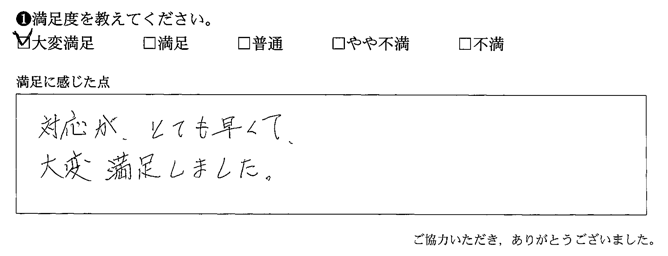 ❶満足度を教えてください。
☑大変満足 □満足 □普通 □やや不満 □不満
満足に感じた点
対応が、とても早くて、
大変満足しました。
ご協力いただき、ありがとうございました。